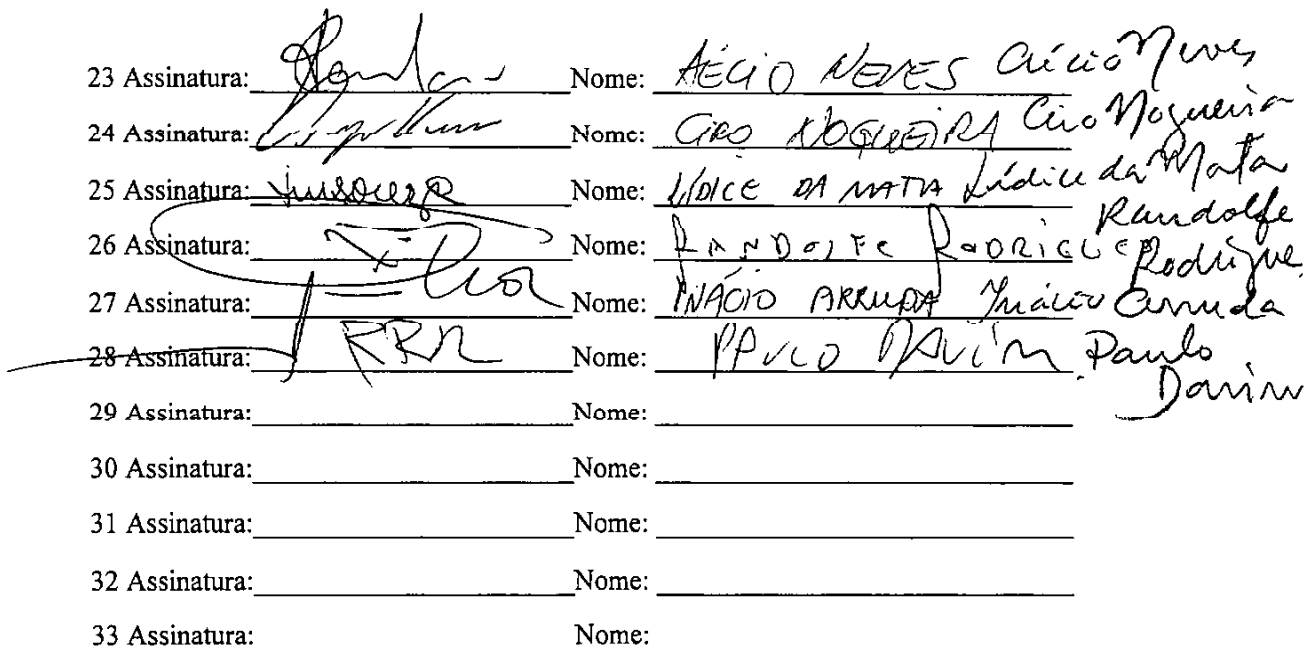 23 Assinatura: Nome: AÉCIO NEVES Aécio Neves
24 Assinatura: Nome: CIRO NOGUEIRA Ciro Nogueira
25 Assinatura: Nome: LÍDICE DA MATTA Lídice da Mata
26 Assinatura: Nome: RANDOLFE RODRIGUE Randolfe Rodrigue
27 Assinatura: Nome: INÁCIO ARRUDA Inácio Arruda
28 Assinatura: Nome: PAULO DAVIM Paulo Davim
29 Assinatura: Nome:
30 Assinatura: Nome:
31 Assinatura: Nome:
32 Assinatura: Nome:
33 Assinatura: Nome: